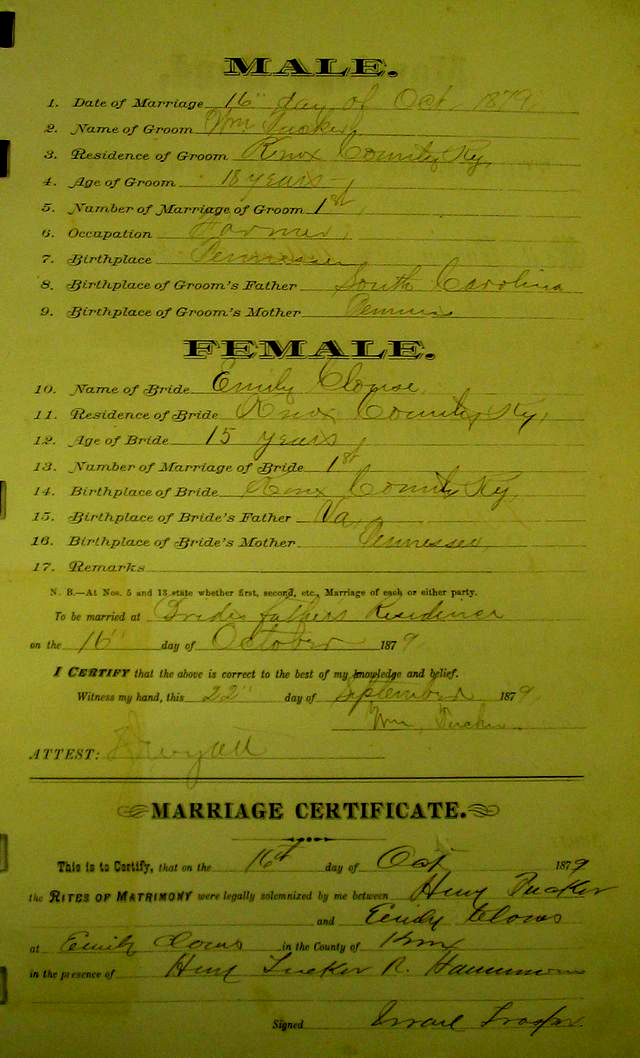 MALE.
1. Date of Marriage 16" day of Oct 1879
2. Name of Groom Wm Tucker
3. Residence of Groom Knox County Ky,
4. Age of Groom 18 years
5. Number of Marriage of Groom 1st
6. Occupation Farmer
7. Birthplace Tennessee
8. Birthplace of Groom's Father South Carolina
9. Birthplace of Groom's Mother
FEMALE.
10. Name of Bride Emily Clouse
11. Residence of Bride Knox County Ky,
12. Age of Bride 15 years
13. Number of Marriage of Bride 1st
14. Birthplace of Bride Knox County Ky,
15. Birthplace of Bride's Father Va,
16. Birthplace of Bride's Mother Tennessee
17. Remarks
N. B.—At Nos. 5 and 13 state whether first, second, etc., Marriage of each or either party.
To be married at Brides fathers Residence
on the 16" day of October 1879,
I CERTIFY that the above is correct to the best of my knowledge and belief.
Witness my hand, this 22" day of September 1879,
Wm, Tucker
ATTEST:
MARRIAGE CERTIFICATE.
This is to Certify, that on the 16th day of Oct 1879
the RITES OF MATRIMONY were legally solemnized by me between Henry Tucker
and Emily Clows
at Emily Clows in the County of Knox
in the presence of Henry Tucker R.
Signed